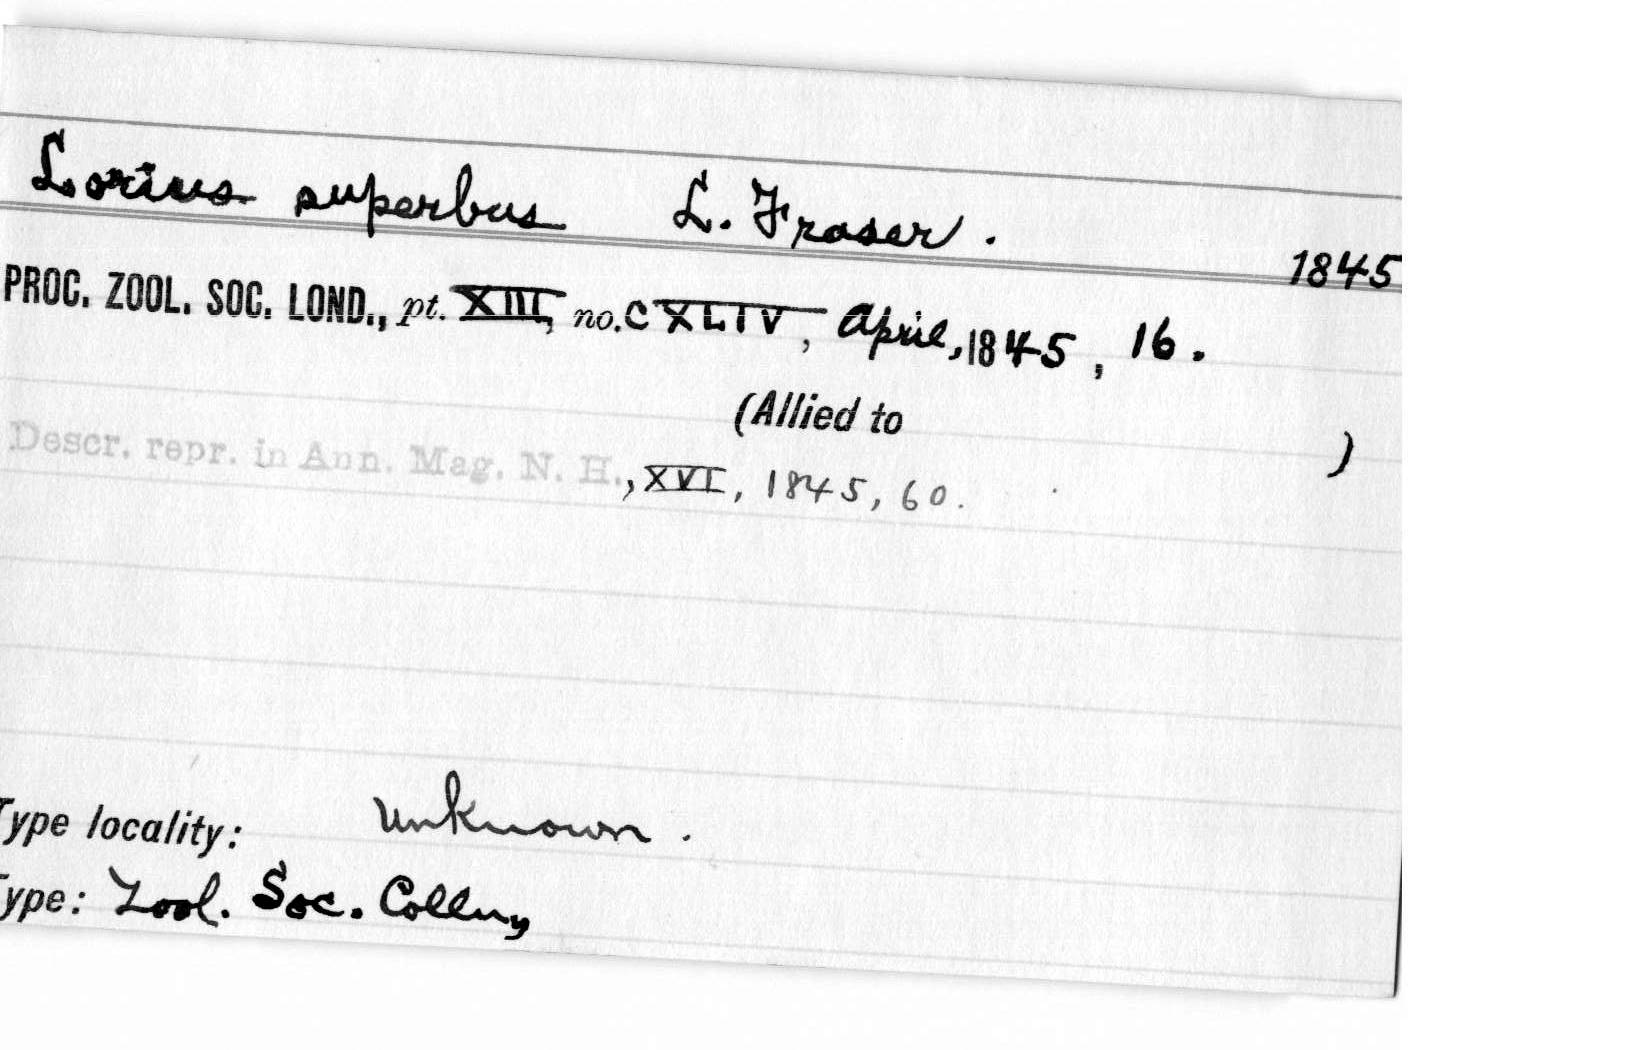 Lorius superbus L. Fraser.
1845
PROC. ZOOL. SOC. LOND., pt. XIII, no. CXLIV, April, 1845, 16.
(Allied to )
Descr. repr. in Ann. Mag. N. H., XVI, 1845, 60.
Type locality: unknown.
Type: Zool. Soc. Colln,